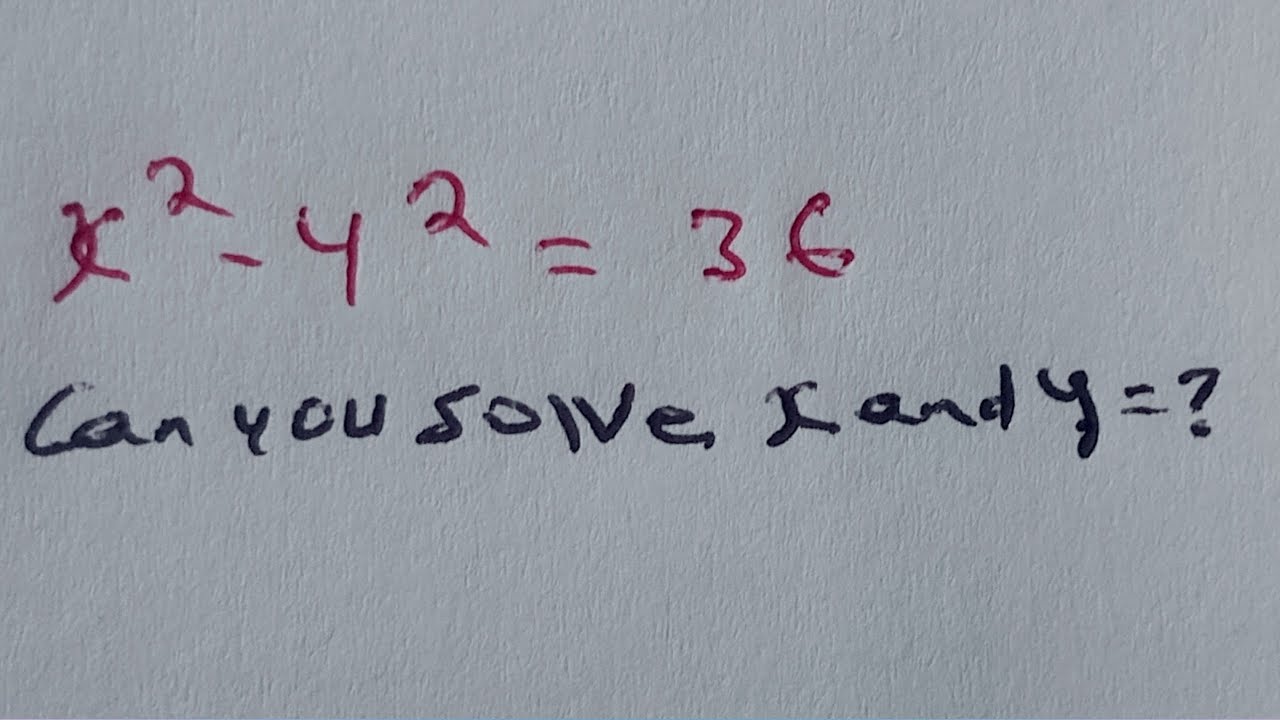 x² - y² = 36
Can you solve x and y = ?